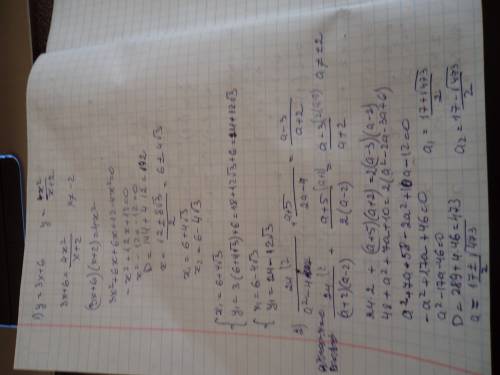 1) y = 3x+6   y = 4x²/(x+2)
3x+6 = 4x²/(x+2)   x ≠ -2
(3x+6)(x+2) = 4x²
3x²+6x+6x+12-4x²=0
-x²+12x+12=0
x²-12x-12=0
D = 144+4·12 = 192
x = (12±8√3)/2 = 6±4√3
x₁ = 6+4√3
x₂ = 6-4√3
{ x₁ = 6+4√3
y₁ = 3(6+4√3)+6 = 18+12√3+6 = 24+12√3
{ x₂ = 6-4√3
y₂ = 24-12√3
2) 24/(a²-4) + (a+5)/(2a-4) = (a-3)/(a+2)
24/((a+2)(a-2)) + (a+5)/(2(a-2)) = (a-3)/(a+2)   a ≠ ±2
24·2 + (a+5)(a+2) = 2(a-3)(a-2)
48 + a² + 7a + 10 = 2(a²-2a-3a+6)
a²+7a+58-2a²+10a-12=0
-a²+17a+46=0
a²-17a-46=0
D = 289+4·46 = 473
a = (17±√473)/2
a₁ = (17+√473)/2
a₂ = (17-√473)/2